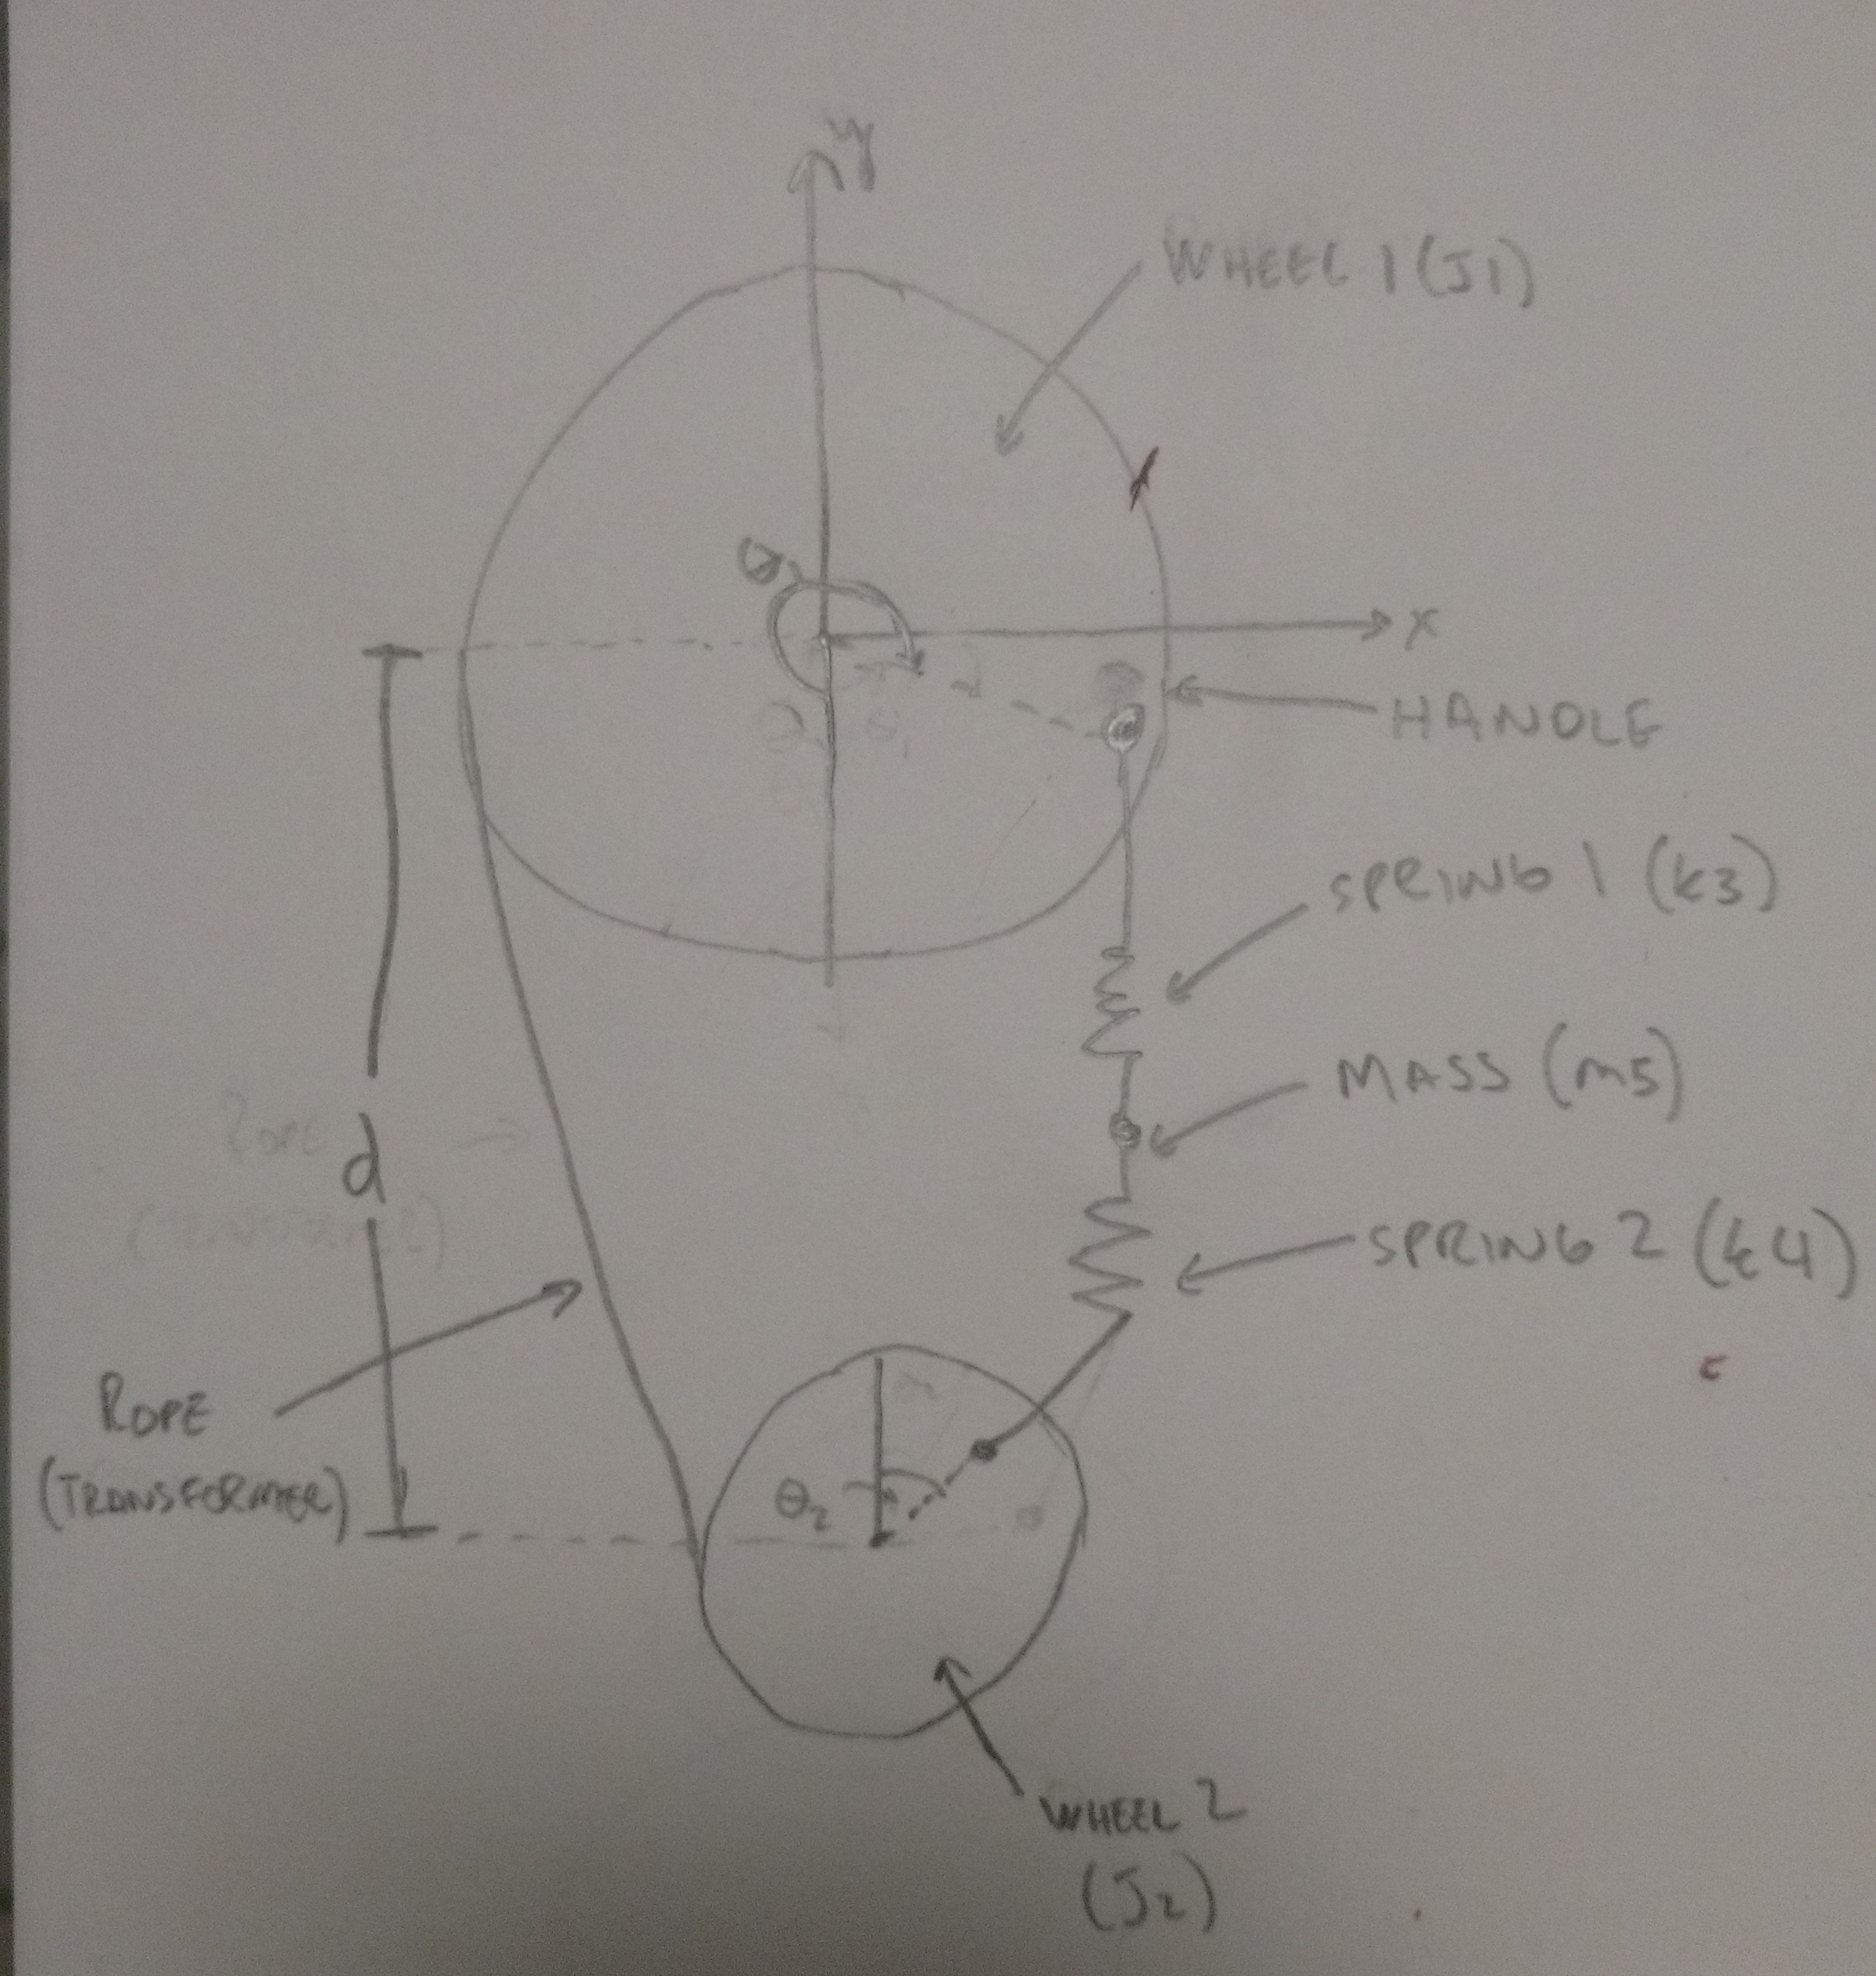 y
WHEEL 1 (J1)
θ
x
HANDLE
SPRING 1 (k3)
MASS (m5)
d
SPRING 2 (k4)
ROPE
(TRANSFORMER)
θ2
WHEEL 2
(J2)